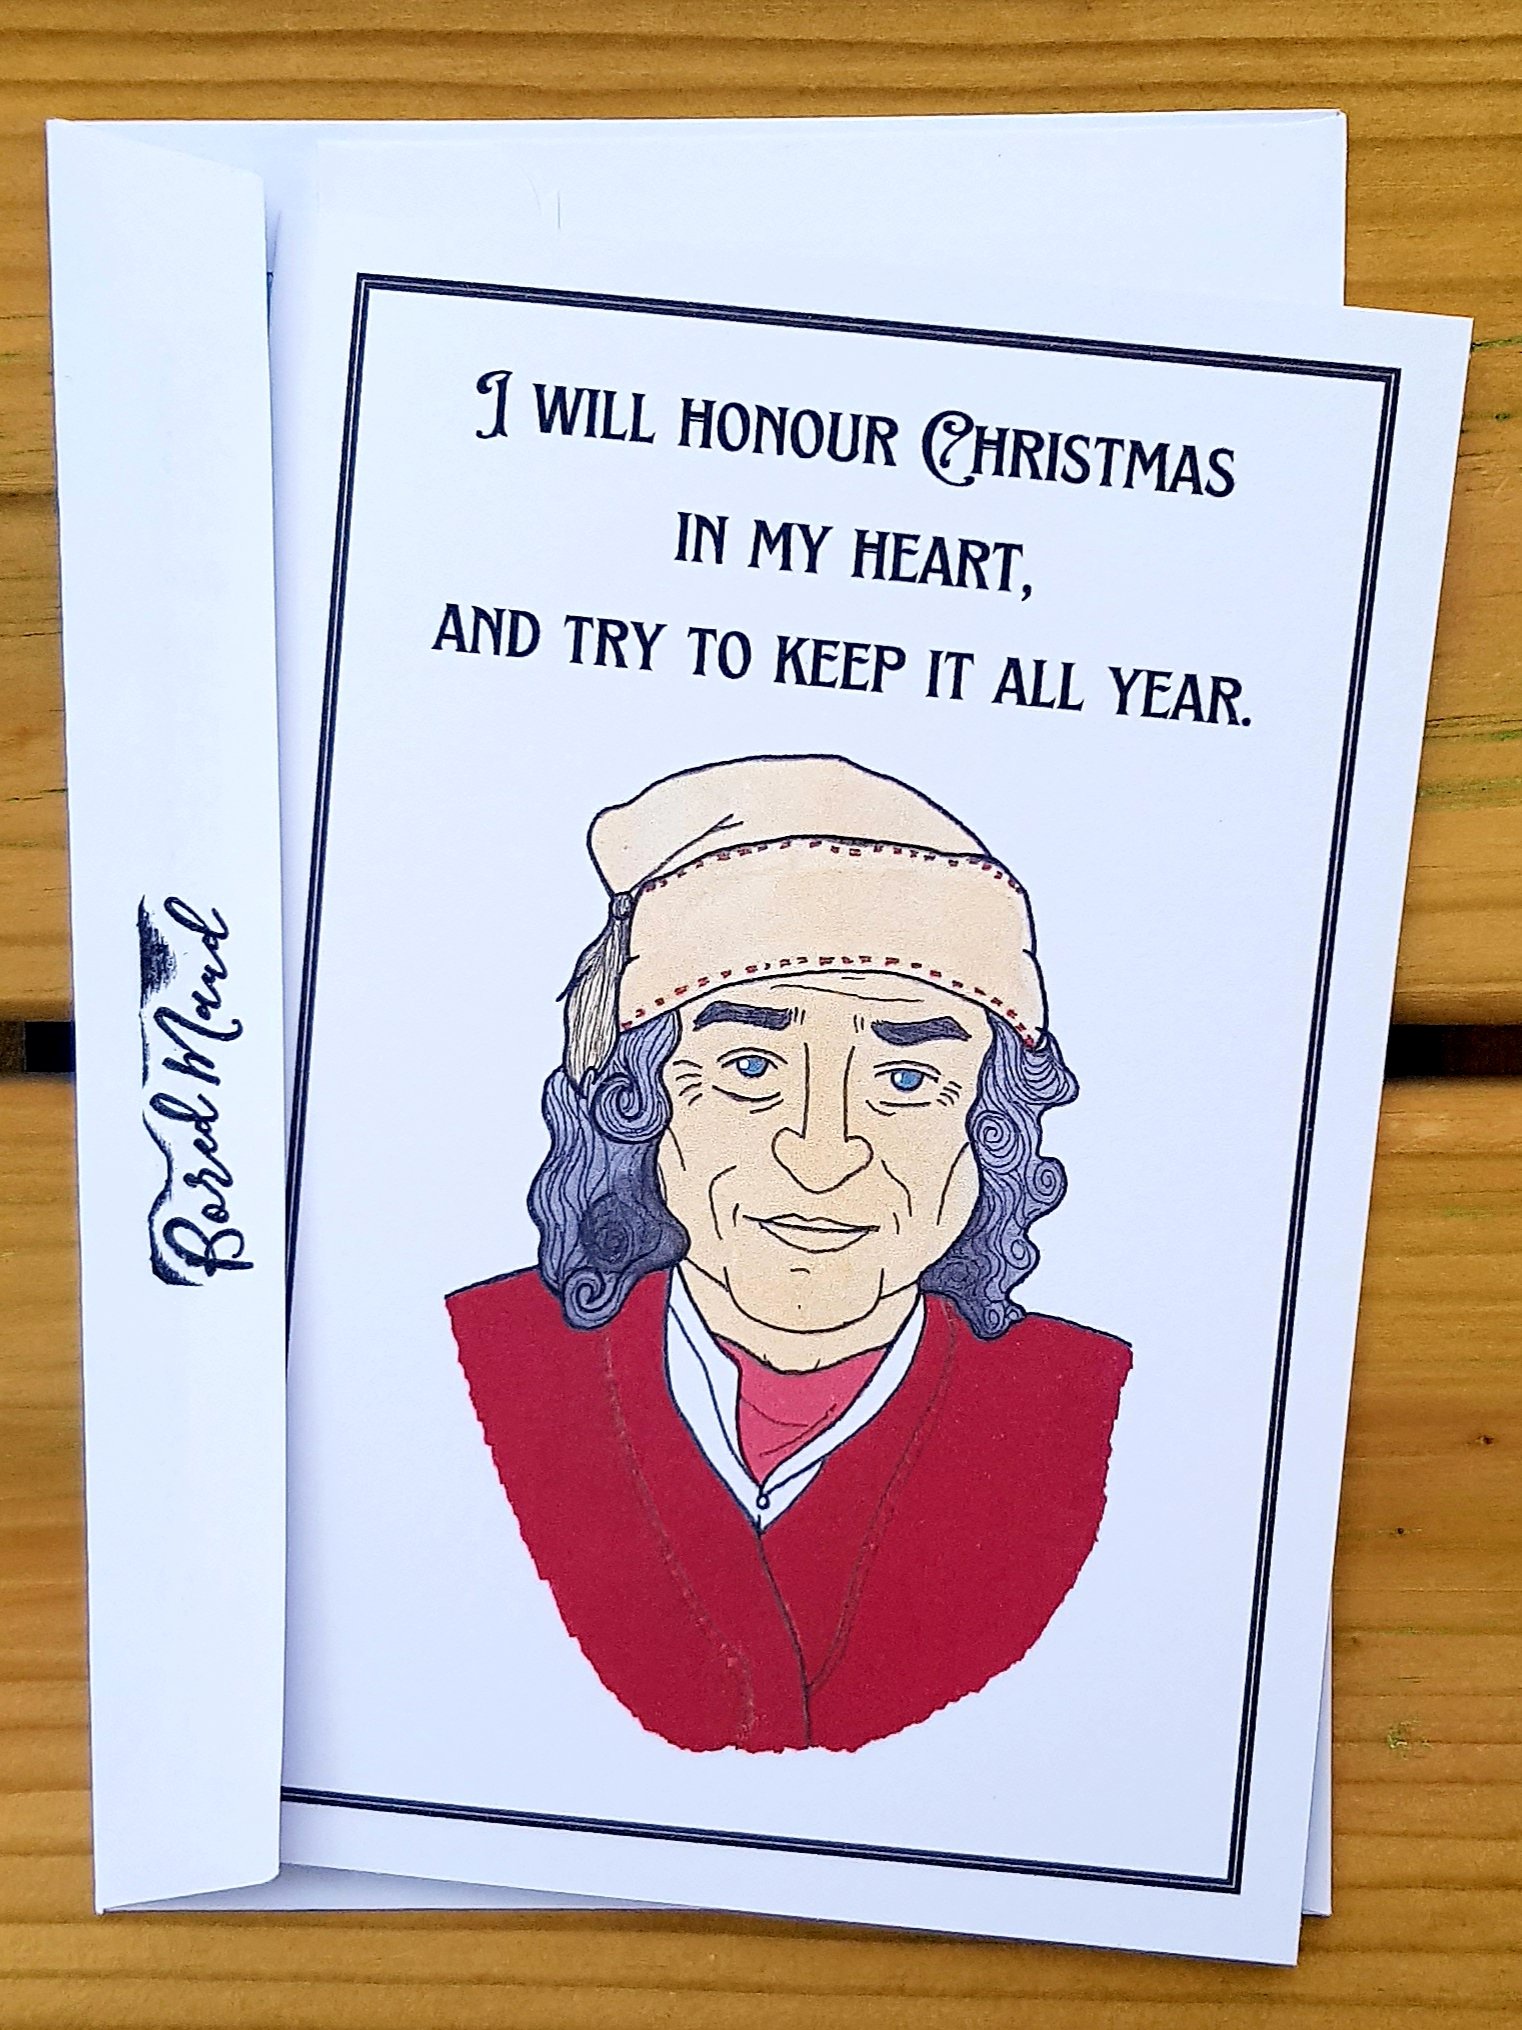 I WILL HONOUR CHRISTMAS
IN MY HEART,
AND TRY TO KEEP IT ALL YEAR.
Bored Maud